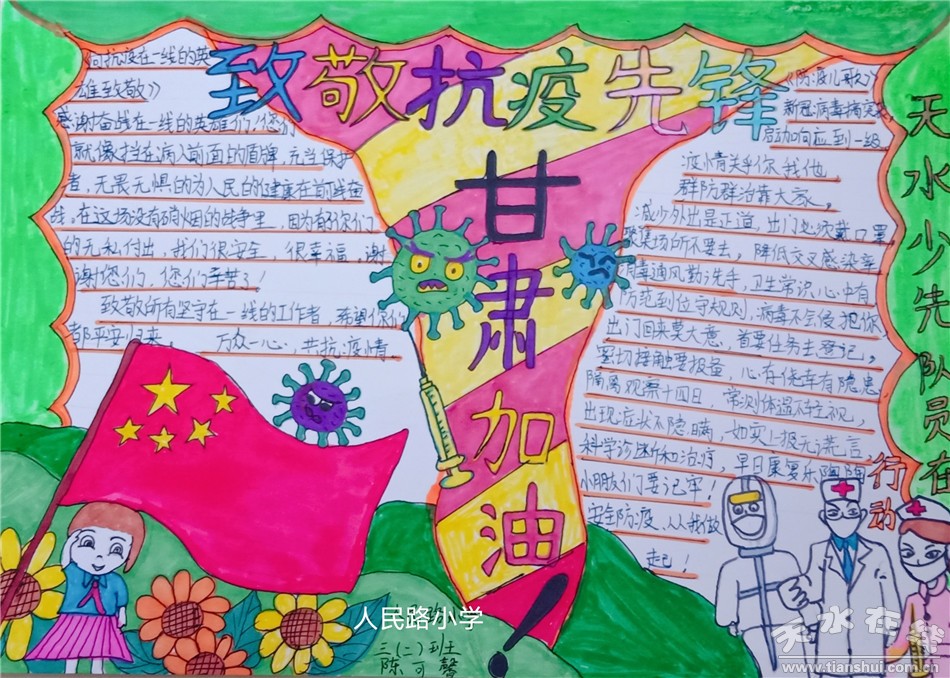 致敬抗疫先锋
甘肃加油!
向抗疫在一线的英
雄致敬》
感谢奋战在一线的英雄们,您们
就像挡在病人前面的盾牌,充当保护
者,无畏无惧的为人民的健康在前线奋
战,在这场没有硝烟的战争里,因为有你们
的无私付出,我们很安全,很幸福,谢
谢您们,您们辛苦了!
致敬所有坚守在一线的工作者,希望你们
都平安归来。万众一心,共抗疫情
《防疫儿歌》
新冠病毒搞突袭
启动响应到一级
疫情关乎你我他
群防群治靠大家,
减少外出是正道,出门必须戴口罩
聚集场所不要去,降低交叉感染率
消毒通风勤洗手,卫生常识心中有
防范到位守规则,病毒不会侵犯你
出门回来莫大意,首要任务去登记,
密切接触要报备,心存侥幸有隐患
隔离观察十四日,常测体温不轻视,
出现症状不隐瞒,如实上报无谎言
科学诊断和治疗,早日康复乐陶陶
小朋友们要记牢!
安全防疫,从我做
起!
天水少先队员在
行动
人民路小学
三(二)班
陈可馨
天水在线
www.tianshui.com.cn